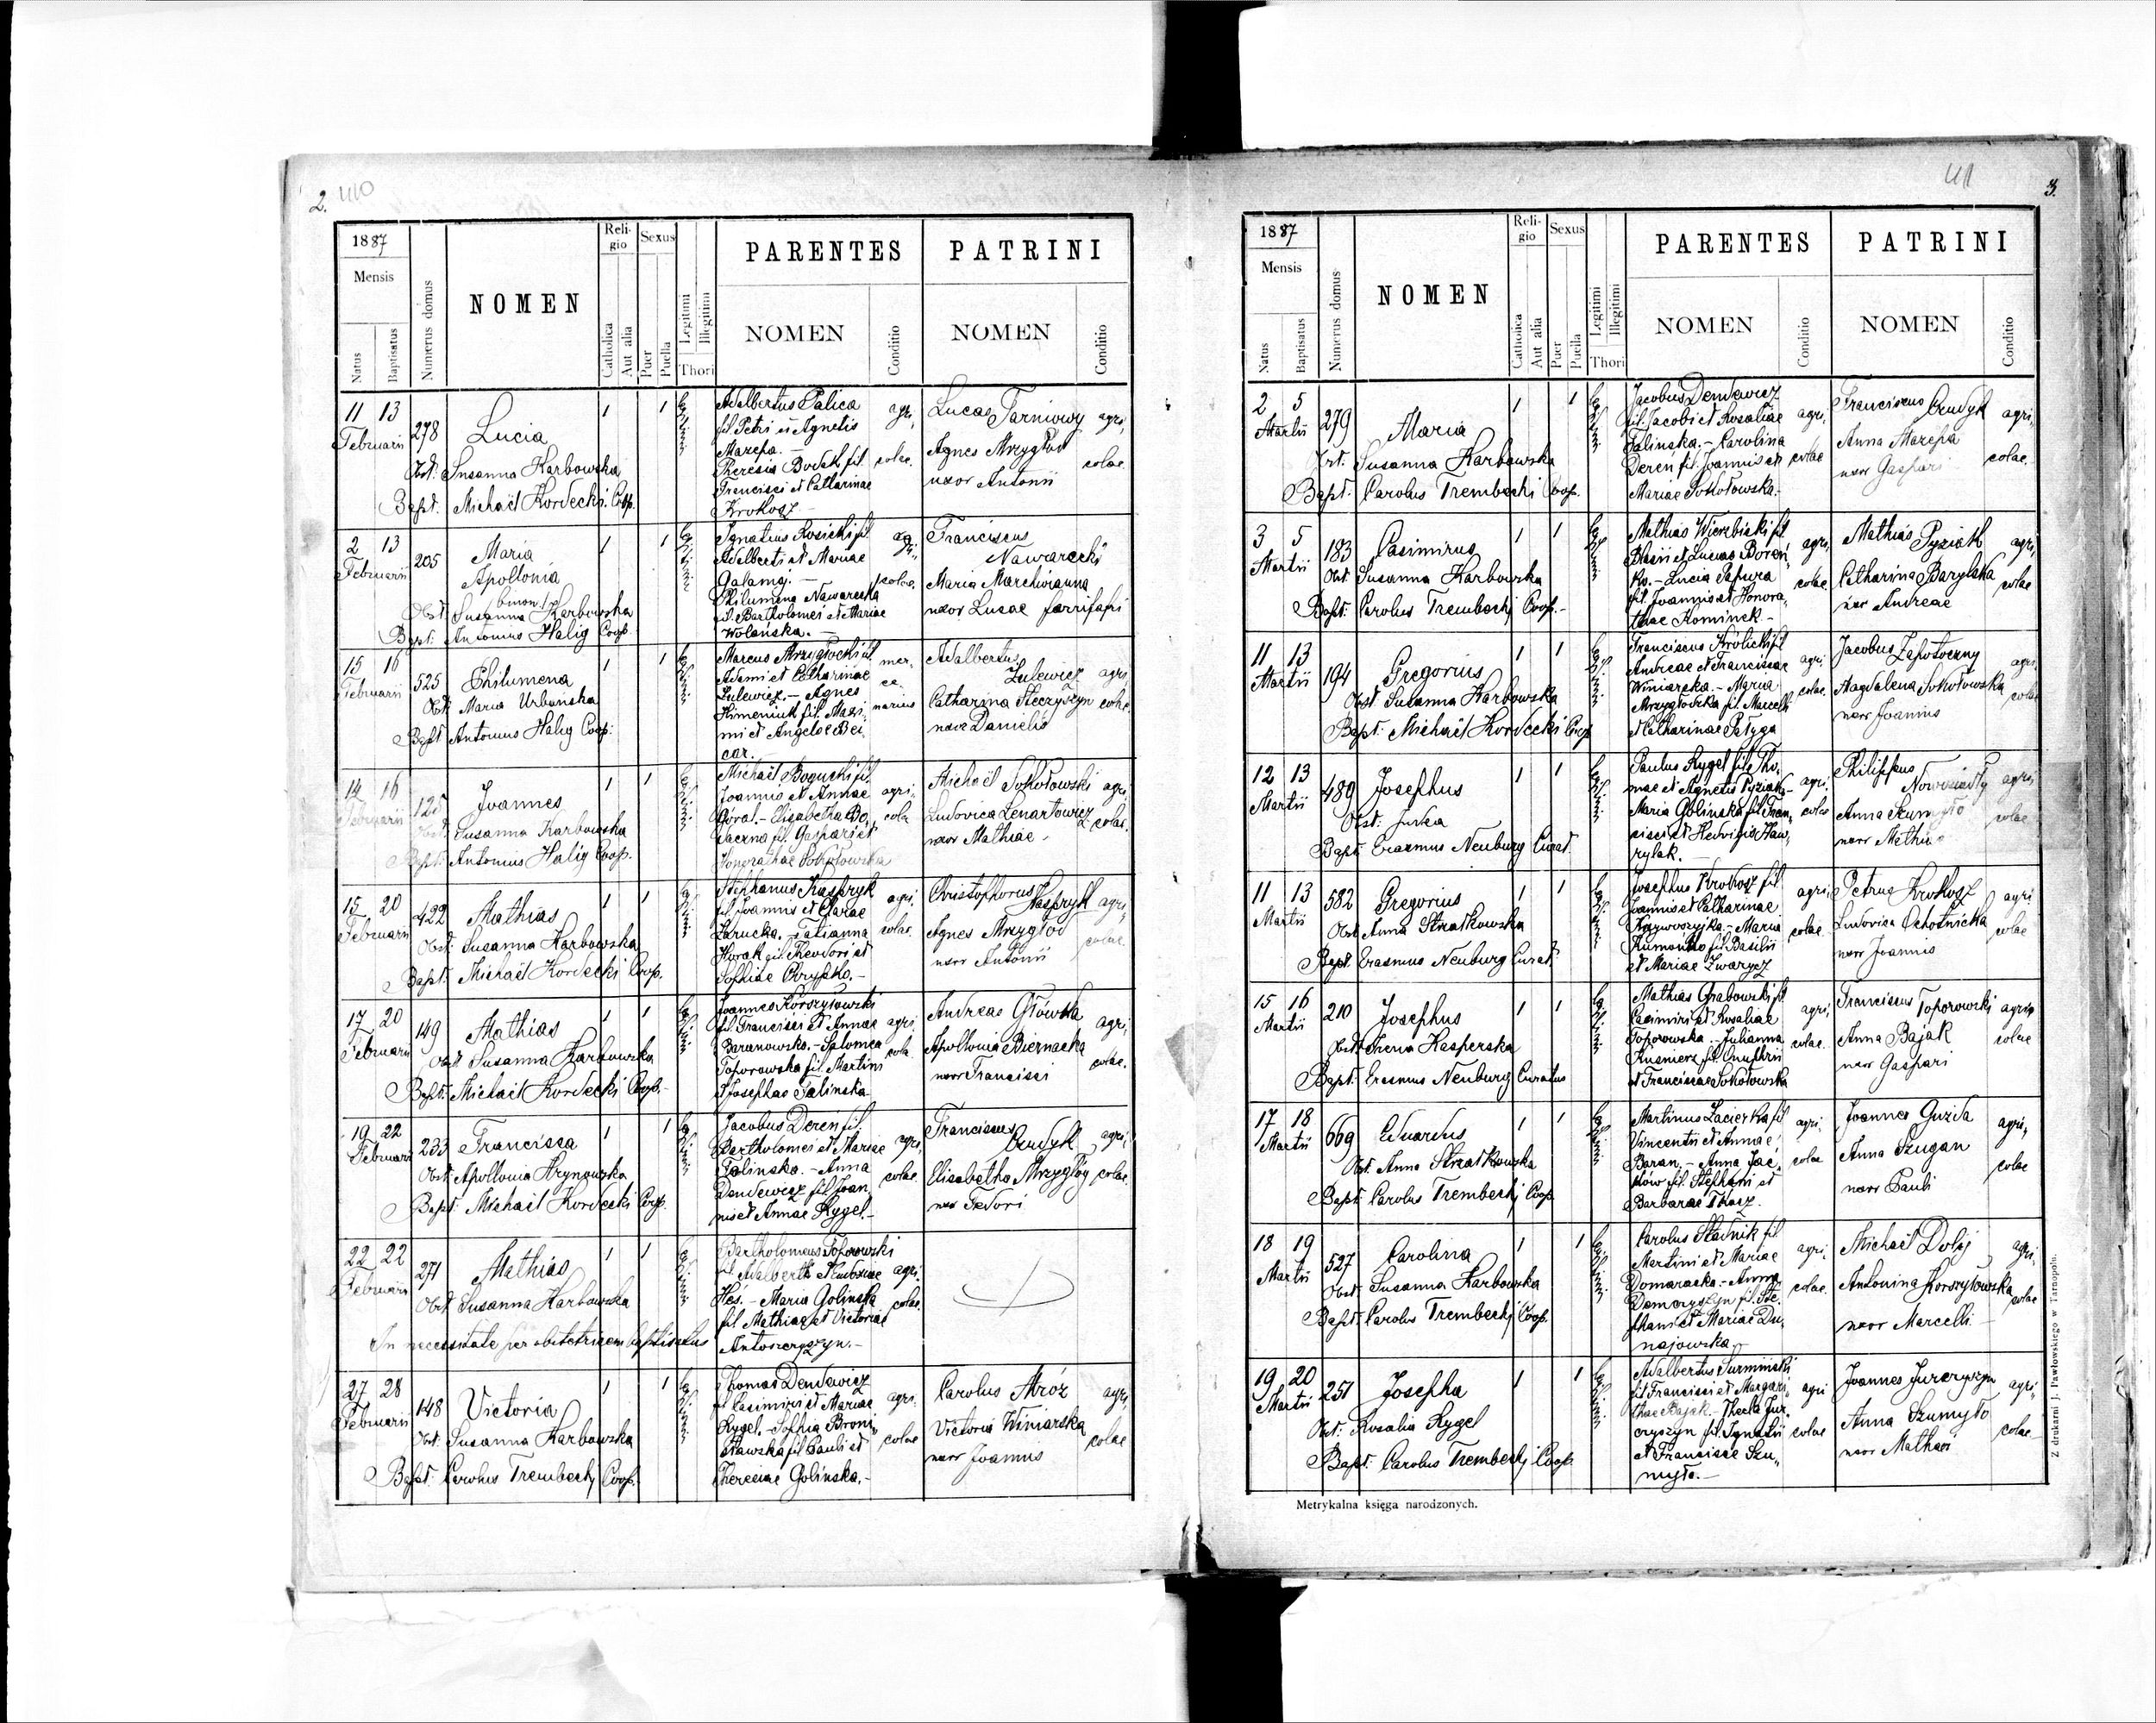 2. 410
1887
Mensis
Natus
Baptisatus
Numerus domus
NOMEN
Religio
Catholica
Aut alia
Sexus
Puer
Puella
Legitimi
Illegitimi
Thori
PARENTES
NOMEN
Conditio
PATRINI
NOMEN
Conditio
11 13 Februarii 278
Lucia
Obst: Susanna Karbowska
Bapt. Michaël Kordecki. Coop.
Adalbertus Palica
fil. Petri et Agnetis
Mazepa. –
Theresia Bodak fil.
Francisci et Catharinae
Krokosz –
agri, colae.
Lucas Tarniowy
Agnes Mrzygłod
uxor Antonii
agri, colae
2 13 Februarii 205
Maria
Apollonia
binom.
Obst: Susanna Karbowska
Bapt: Antonius Halig Coop.
Ignatius Kosicki fil.
Adalberti et Mariae
Galamg. –
Philumena Nawarecka
fil. Bartholomei et Mariae
Wolańska. –
agri, colae.
Franciscus
Nawarecki
Maria Marchivianna
uxor Lucae farrifafri
15 16 Februarii 525
Philumena
Obst: Maria Urbańska
Bapt Antonius Halig Coop.
Marcus Mrzygłocki fil
Adami et Catharinae
Zulewicz. – Agnes
Kimeniuk fil. Maxi,
mi et Angelae Bei,
car. –
mer, ce, narius
Adalbertus
Zulewicz
Catharina Steczyszyn
uxor Danielis
agri, colae.
14 16 Februarii 125
Joannes
Obst: Susanna Karbowska
Bapt: Antonius Halig Coop.
Michaël Bogucki fil.
Joannis et Annae
Góral. – Elisabetha Bo,
daczna fil. Gaspari et
Honorathae Sokołowska
agri, colae
Michaël Sokołowski
Ludovica Lenartowicz
uxor Mathiae –
agri, colae.
15 20 Februarii 422
Mathias
Obst: Susanna Karbowska
Bapt: Michaël Kordecki Coop.
Stephanus Kaspryk
fil. Joannis et Clarae
Zarucka. – Tatianna
Horak fil. Theodori et
Sophiae Chrypko. –
agri, colae.
Christophorus Kaspryk
Agnes Mrzygłod
uxor Antonii
agri, colae.
17 20 Februarii 149
Mathias
Obst Susanna Karbowska
Bapt: Michaël Kordecki Coop. –
Joannes Korszyłowski
fil Francisci et Annae
Baranowska. – Salomea
Toporowska fil. Martini
et Josephae Talinska.
agri, colae
Andreas Główka
Apollonia Biernacka
uxor Francisci
agri, colae.
19 22 Februarii 233
Francisca
Obst: Apollonia Hrynowska
Bapt: Michaël Kordecki Coop.
Jacobus Dereń fil.
Bartholomei et Mariae
Talinska. – Anna
Dendewicz fil. Joan,
nis et Annae Rygel. –
agri, colae.
Franciscus
Cendyk
Elisabetha Mrzygłog
uxor Fedori
agri, colae.
22 22 Februarii 271
Mathias
Obst: Susanna Karbowska
In necessitate per obstetricem baptisatus
Bartholomeus Toporowski
fil Adalberti et Eudoxiae
Hes. – Maria Golinska
fil Mathiae et Victoriae
Antoszczyszyn. –
agri, colae.
27 28 Februarii 148
Victoria
Obst: Susanna Karbowska
Bapt: Carolus Trembecki Coop.
Thomas Dendewicz
fil Casimiri et Mariae
Rygel. – Sophia Broni,
sławska fil Pauli et
Theresiae Golińska. –
agri, colae
Carolus Mróz
Victoria Winiarska
uxor Joannis
agri, colae
411 3.
1887
Mensis
Natus
Baptisatus
Numerus domus
NOMEN
Religio
Catholica
Aut alia
Sexus
Puer
Puella
Legitimi
Illegitimi
Thori
PARENTES
NOMEN
Conditio
PATRINI
NOMEN
Conditio
2 5 Martii 279
Maria
Obst: Susanna Karbowska
Bapt: Carolus Trembecki Coop.
Jacobus Dendewicz
fil. Jacobi et Rosaliae
Talinska. – Carolina
Deren fil. Joannis et
Mariae Sokołowska. –
agri, colae
Franciscus Cendyk
Anna Mazepa
uxor Gaspari
agri, colae.
3 5 Martii 183
Casimirus
Obst: Susanna Karbowska
Bapt: Carolus Trembecki Coop. –
Mathias Wierzbicki fil
Blasii et Lucias Boreń,
ko. – Lucia Papura
fil. Joannis et Honora,
thae Kominek –
agri, colae
Mathias Pyziak
Catharina Barylska
uxor Andreae
agri, colae
11 13 Martii 194
Gregorius
Obst Susanna Karbowska
Bapt: Michaël Kordecki Coop
Franciscus Królicki fil
Andreae et Franciscae
Winiarska. – Maria
Mrzygłodzka fil. Marcelli
et Catharinae Pałyga
agri, colae.
Jacobus Zapotoczny
Magdalena Sokołowska
uxor Joannis
agri, colae
12 13 Martii 489
Josephus
Obst: Judca
Bapt: Erasmus Neuburg Curat.
Paulus Rygel fil. Tho,
mae et Agnetis Pyziak. –
Maria Golińska fil. Fran,
cisci et Hedvigis Haw,
rylak. –
agri, colae
Philippus
Nowosiadły
Anna Szumyło
uxor Mathiae
agri, colae
11 13 Martii 582
Gregorius
Obst Anna Stratkowska
Bapt Erasmus Neuburg Curat.
Josephus Krokosz fil.
Joannis et Catharinae
Krzywoszyjka. – Maria
Rumanko fil. Basilii
et Mariae Zwarycz
agri, colae.
Petrus Krokosz
Ludovica Ochotnicka
uxor Joannis
agri, colae
15 16 Martii 210
Josephus
Obst Irena Kasperska
Bapt: Erasmus Neuburg Curatus
Mathias Grabowski fil
Casimiri et Rosaliae
Toporowska. – Julianna
Kusnierz fil. Onuphrii
et Franciscae Sokołowska
agri, colae.
Franciscus Toporowski
Anna Bajak
uxor Gaspari
agri, colae
17 18 Martii 669
Eduardus
Obst. Anna Stratkowska
Bapt: Carolus Trembecki Coop
Martinus Zacierka fil
Vincentii et Annae
Baran. – Anna Jac,
ków fil. Stephani et
Barbarae Tkacz.
agri, colae
Joannes Guzda
Anna Szugan
uxor Pauli
agri, colae
18 19 Martii 527
Carolina
Obst: Susanna Karbowska
Bapt: Carolus Trembecki Coop.
Carolus Stadnik fil
Martini et Mariae
Domaracka. – Anna
Damczyszyn fil. Ste,
phani et Mariae Du,
najowska
agri, colae.
Michaël Dolij
Antonina Korszyłowska
uxor Marcelli –
agri, colae
19 20 Martii 251
Josepha
Obst: Rosalia Rygel
Bapt: Carolus Trembecki Coop
Adalbertus Surmiński
fil Francisci et Marga,
thae Bajak. – Thecla Jur,
czyszyn fil. Ignatii
et Franciscae Szu,
myło. –
agri, colae
Joannes Jurczyszyn
Anna Szumyło
uxor Mathaei
agri, colae
Metrykalna księga narodzonych.
Z drukarni J. Pawłowskiego w Tarnopolu.